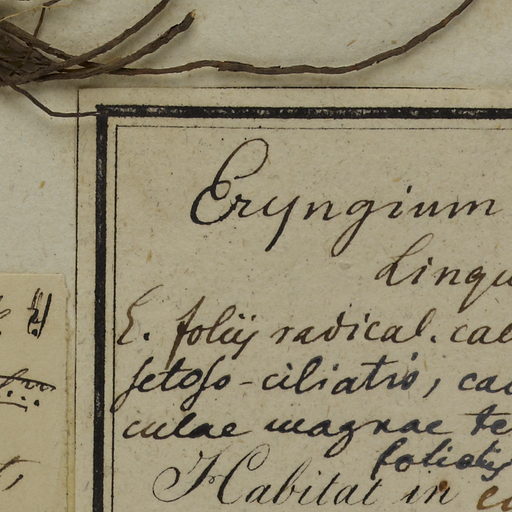 Eryngium
Lingu
E. foliis radical. cau
setoso-ciliatis, cau
culae magnae te
foliatis
Habitat in